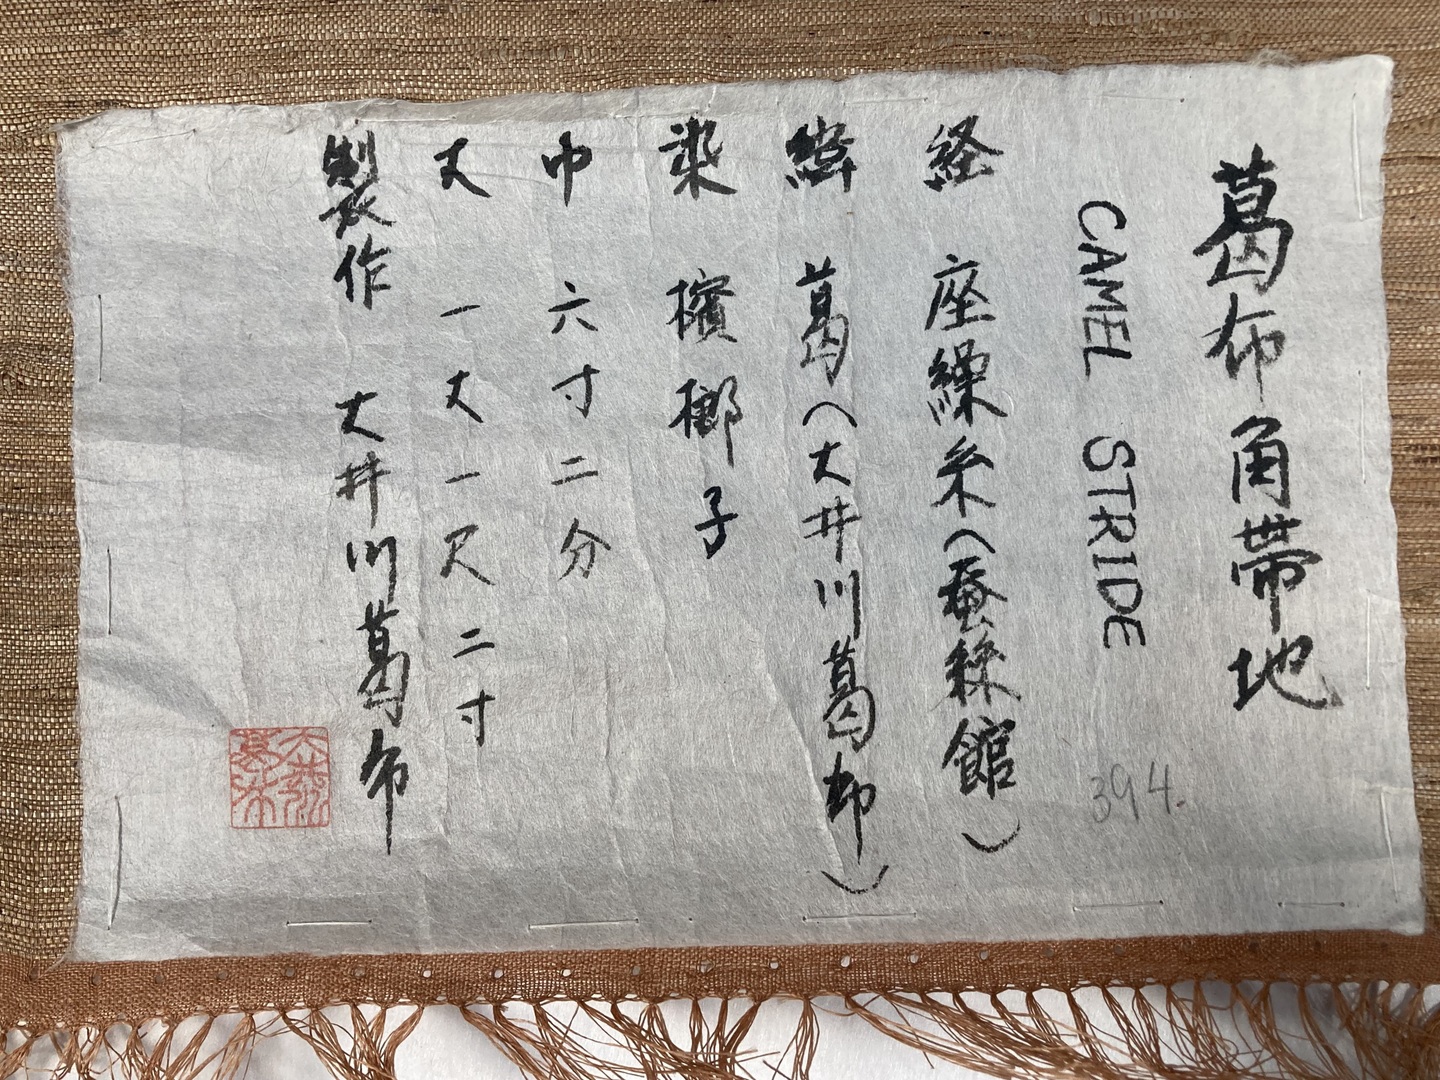 葛布角帯地
CAMEL STRIDE
394.
経 座繰糸(蚕絲館)
緯 葛(大井川葛布)
染 檳榔子
巾 六寸二分
丈 一丈一尺二寸
製作 大井川葛布